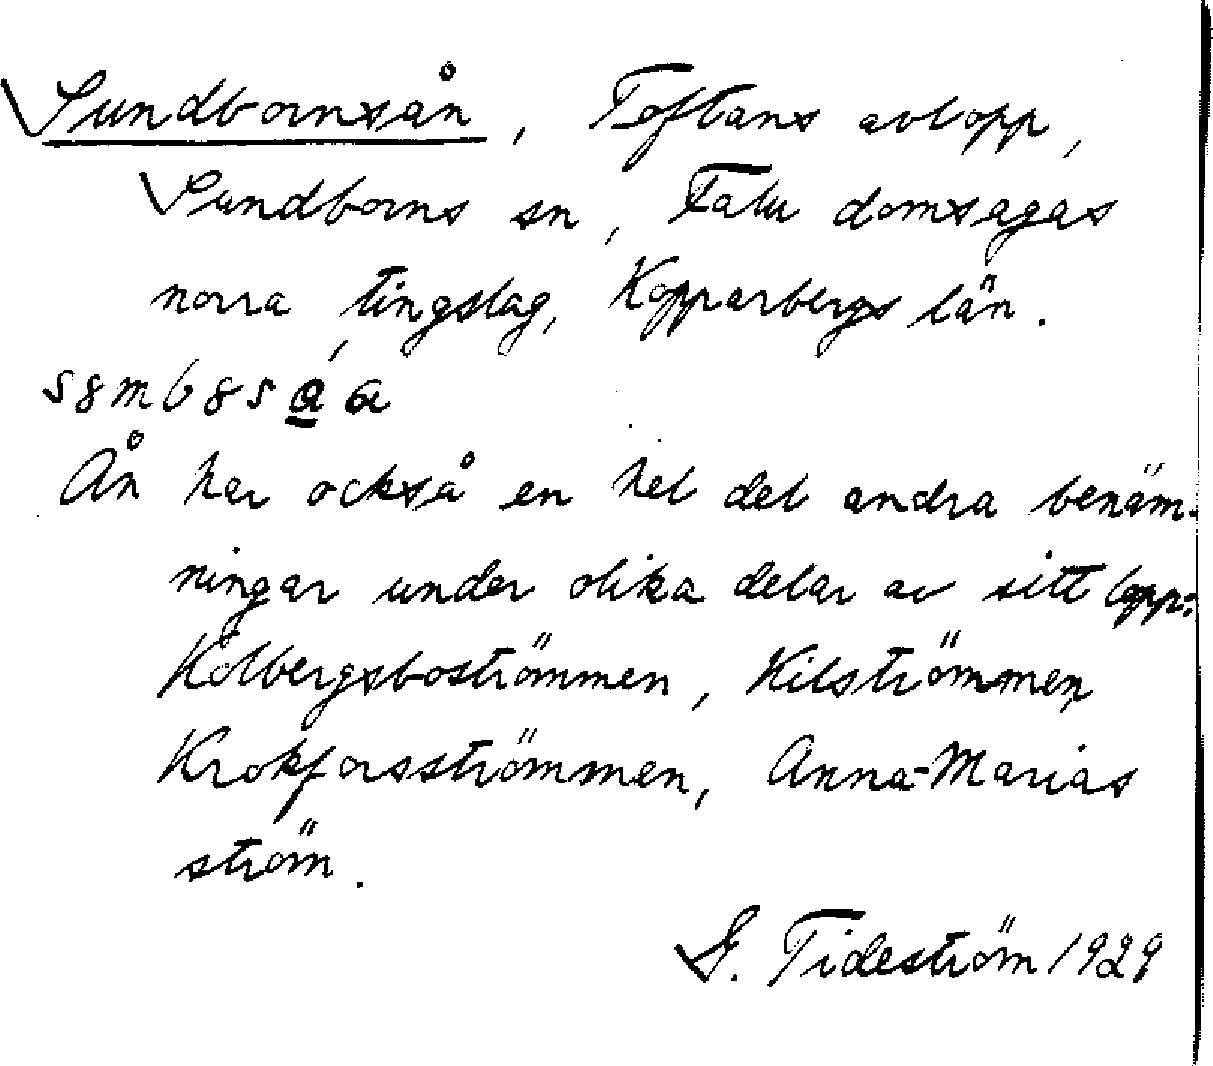 Sundbornsån, Toftans avlopp,
Sundborns sn, Falu domsagas
norra tingslag, Kopparbergs län.
Ån har också en hel del andra benäm-
ningar under olika delar av sitt lopp:
Kolbergsboströmmen, Kilströmmen,
Krokforsströmmen, Anna-Marias
ström.
G. Tideström 1929